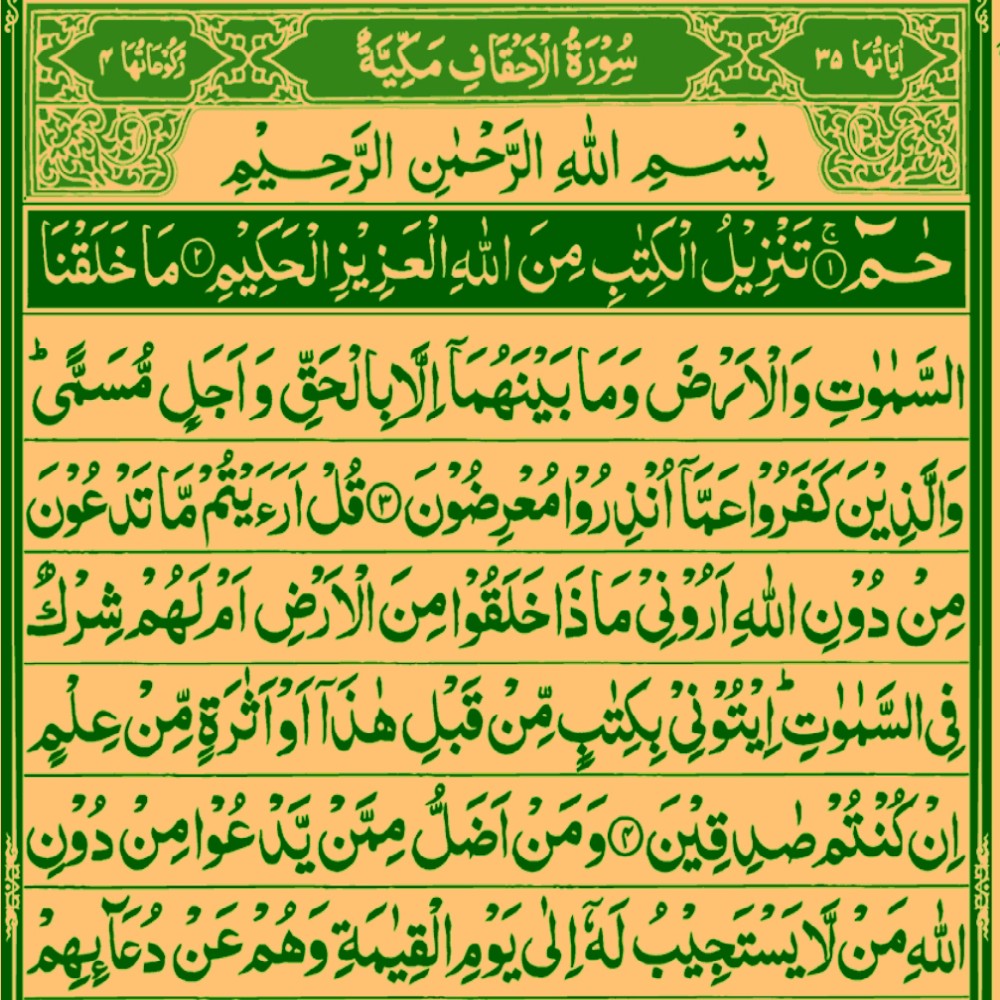 اٰيَاتُهَا ۳۵ سُوْرَةُ الْاَحْقَافِ مَكِّيَّةٌ رُكُوْعَاتُهَا ۴
بِسْمِ اللّٰهِ الرَّحْمٰنِ الرَّحِيْمِ
حٰمٓ ۚ﴿۱﴾ تَنْزِيْلُ الْكِتٰبِ مِنَ اللّٰهِ الْعَزِيْزِ الْحَكِيْمِ ﴿۲﴾ مَا خَلَقْنَا
السَّمٰوٰتِ وَالْاَرْضَ وَمَا بَيْنَهُمَاۤ اِلَّا بِالْحَقِّ وَ اَجَلٍ مُّسَمًّىؕ
وَالَّذِيْنَ كَفَرُوْا عَمَّاۤ اُنْذِرُوْا مُعْرِضُوْنَ ﴿۳﴾ قُلْ اَرَءَيْتُمْ مَّا تَدْعُوْنَ
مِنْ دُوْنِ اللّٰهِ اَرُوْنِيْ مَاذَا خَلَقُوْا مِنَ الْاَرْضِ اَمْ لَهُمْ شِرْكٌ
فِي السَّمٰوٰتِؕ اِيْتُوْنِيْ بِكِتٰبٍ مِّنْ قَبْلِ هٰذَاۤ اَوْ اَثٰرَةٍ مِّنْ عِلْمٍ
اِنْ كُنْتُمْ صٰدِقِيْنَ ﴿۴﴾ وَ مَنْ اَضَلُّ مِمَّنْ يَّدْعُوْا مِنْ دُوْنِ
اللّٰهِ مَنْ لَّا يَسْتَجِيْبُ لَهٗۤ اِلٰى يَوْمِ الْقِيٰمَةِ وَهُمْ عَنْ دُعَآئِهِمْ